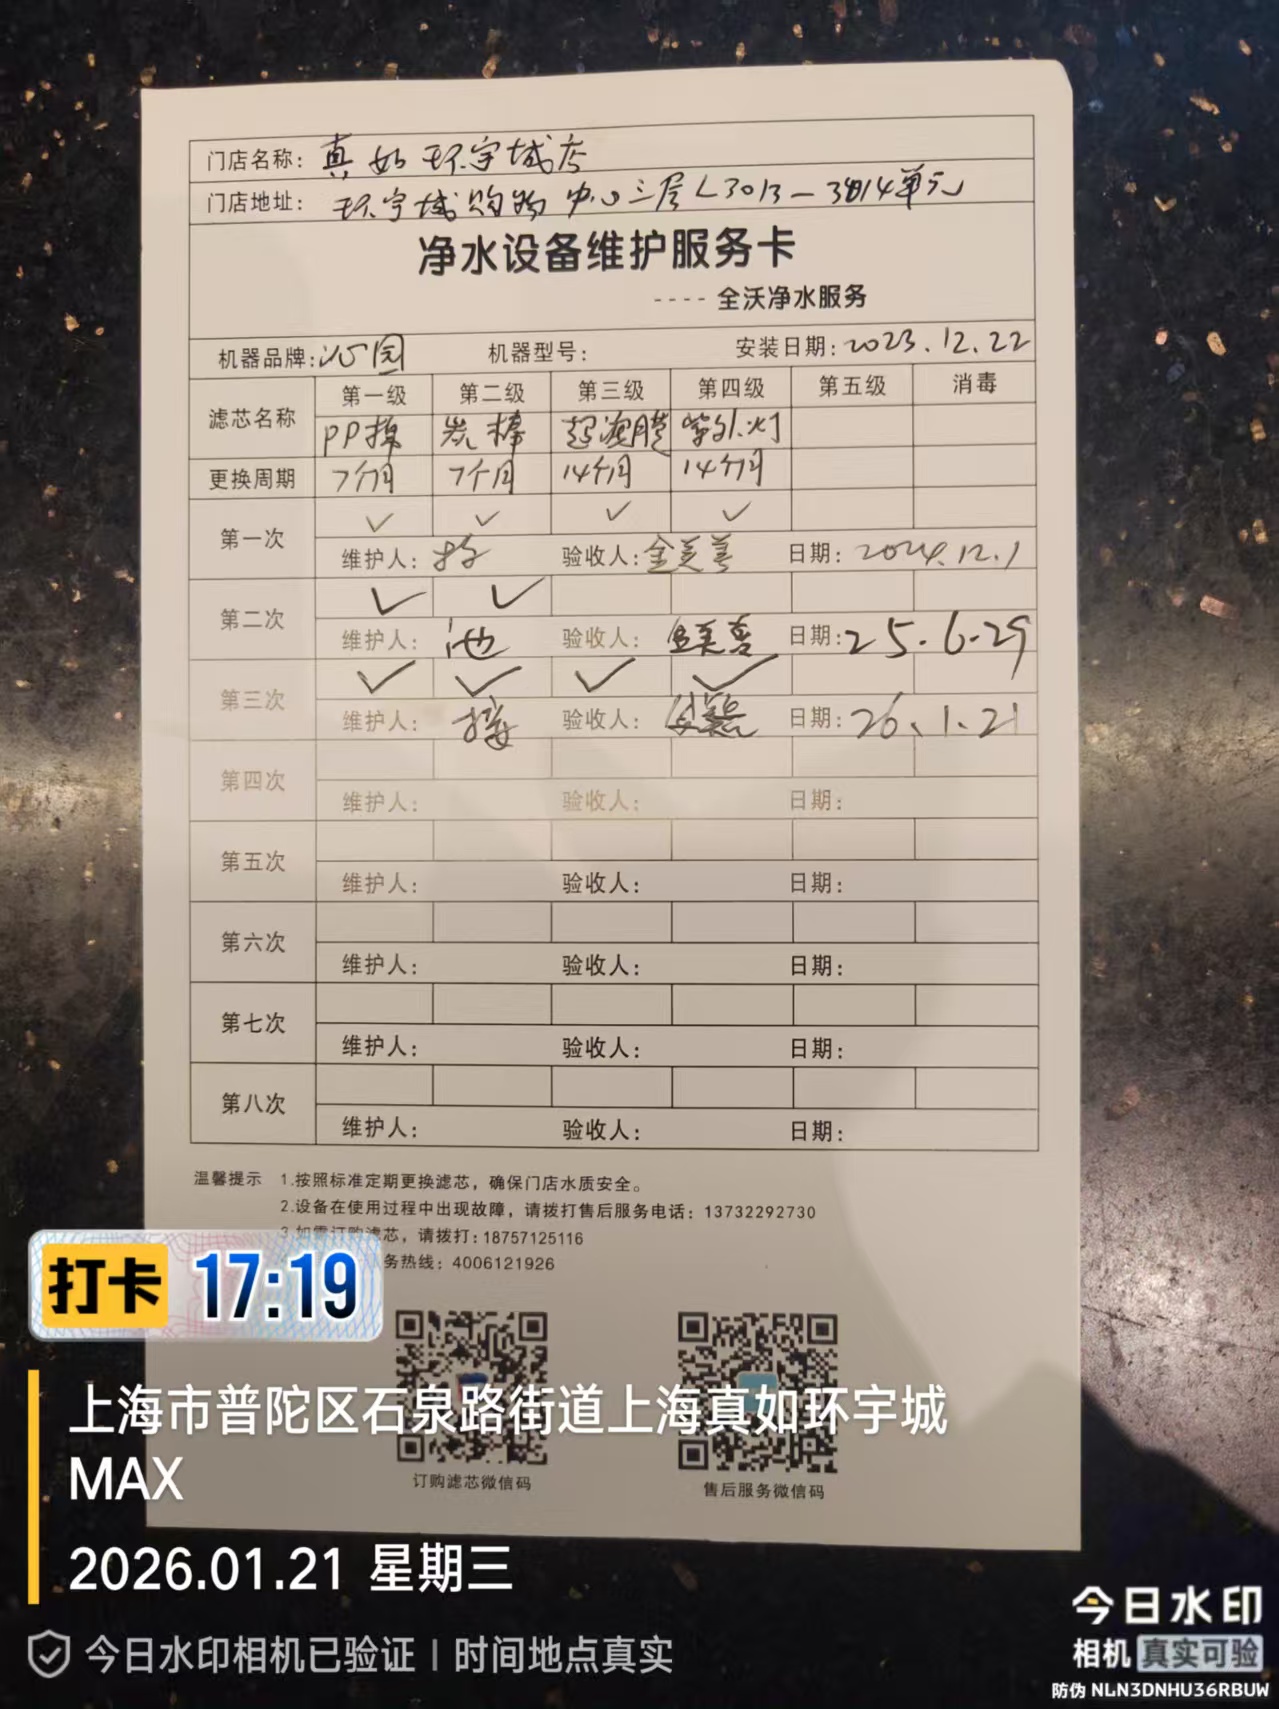 门店名称：真如环宇城店
门店地址：环宇城购物中心三层L3013－3014单元
净水设备维护服务卡
----全沃净水服务
机器品牌：沁园 机器型号： 安装日期：2023.12.22
滤芯名称 第一级 第二级 第三级 第四级 第五级 消毒
PP棉 炭棒 超滤膜 紫外灯
更换周期 7个月 7个月 14个月 14个月
第一次 ✓ ✓ ✓ ✓
维护人： 验收人：金美善 日期：2024.12.1
第二次 ✓ ✓
维护人：池 验收人：金美善 日期：25.6.29
第三次 ✓ ✓ ✓ ✓
维护人： 验收人： 日期：26.1.21
第四次
维护人： 验收人： 日期：
第五次
维护人： 验收人： 日期：
第六次
维护人： 验收人： 日期：
第七次
维护人： 验收人： 日期：
第八次
维护人： 验收人： 日期：
温馨提示 1.按照标准定期更换滤芯，确保门店水质安全。
2.设备在使用过程中出现故障，请拨打售后服务电话：13732292730
3.如需订购滤芯，请拨打：18757125116
务热线：4006121926
打卡 17:19
订购滤芯微信码 售后服务微信码
上海市普陀区石泉路街道上海真如环宇城
MAX
2026.01.21 星期三
今日水印相机已验证 | 时间地点真实
今日水印
相机 真实可验
防伪 NLN3DNHU36RBUW